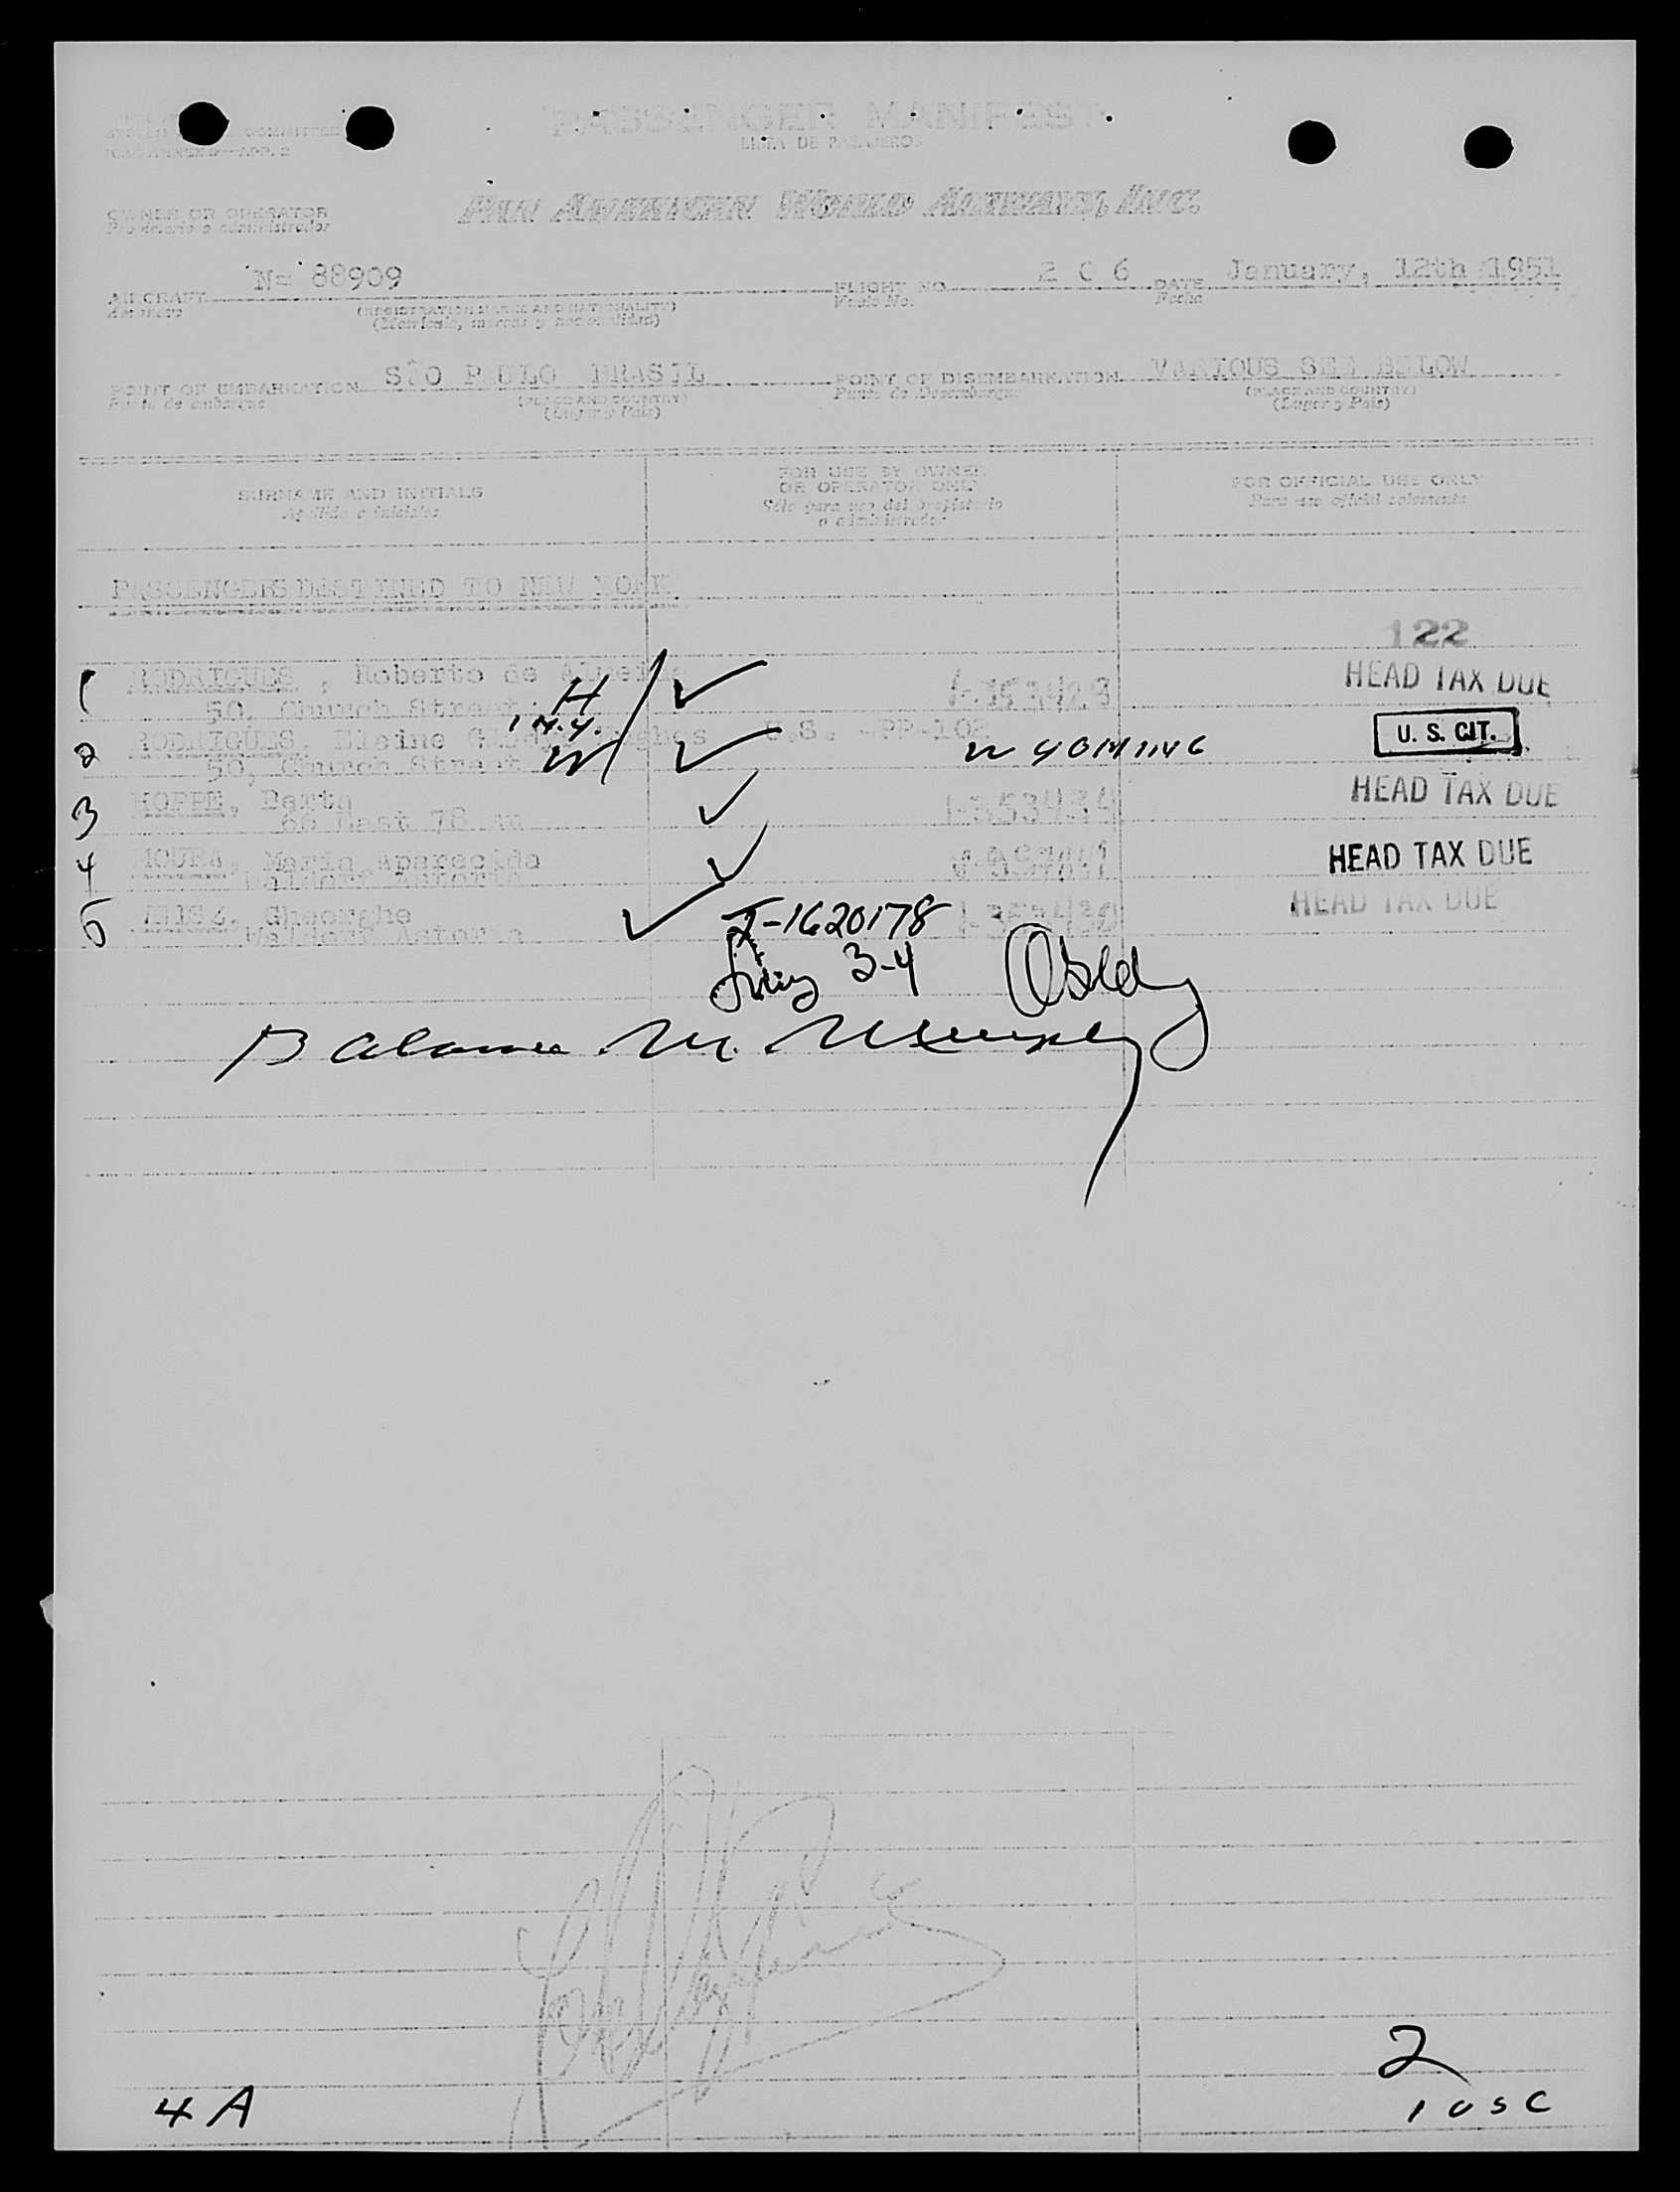 PASSENGER MANIFEST
LISTA DE PASAJEROS
APP. 2
PAN AMERICAN WORLD AIRWAYS, INC.
OWNER OR OPERATOR
Propietario o administrador
AIRCRAFT N= 88909 FLIGHT NO. 2 0 6 DATE January, 12th 1951
Aeronave (REGISTRATION MARKS AND NATIONALITY) Vuelo No. Fecha
(Matrícula, marcas y nacionalidad)
POINT OF EMBARKATION SÃO PAULO BRASIL POINT OF DISEMBARKATION VARIOUS SEE BELOW
Punto de embarque (PLACE AND COUNTRY) Punto de Desembarque (PLACE AND COUNTRY)
(Lugar y País) (Lugar y País)
SURNAME AND INITIALS FOR USE BY OWNER OR OPERATOR ONLY FOR OFFICIAL USE ONLY
Apellido e iniciales Sólo para uso del propietario o administrador Para uso oficial solamente
PASSENGERS DESTINED TO NEW YORK
122
1 RODRIGUES, Roberto de Almeida HEAD TAX DUE
50, Church Street H
1 N.Y.
2 RODRIGUES, Elaine Hughes U.S. -PP-10 WYOMING U. S. CIT.
50, Church Street W
3 HOPPE, Berta HEAD TAX DUE
66 East 78
4 MOURA, Maria Aparecida HEAD TAX DUE
Waldorf Astoria
5 Gheorghe I-1620178 HEAD TAX DUE
Waldorf Astoria
3-4
M.
4 A
2
1 USC